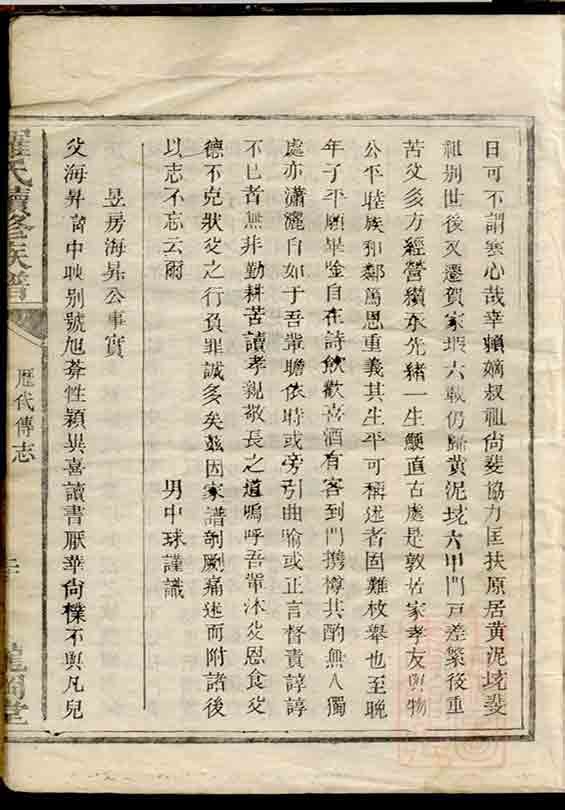 日可不謂寒心哉幸賴嫡叔祖尙斐協力匡扶原居黃泥垅斐
祖別世後又遷賀家塅六載仍歸黃泥垅六甲門戸差繁後重
苦父多方經營纘承先緒一生鯁直古處是敦居家孝友與物
公平睦族和鄰篤恩重義其生平可稱述者固難枚舉也至晚
年子平願畢唫自在詩飲歡喜酒有客到門携樽共酌無人獨
處亦瀟灑自如于吾輩瞻依時或旁引曲喻或正言督責諄諄
不巳者無非勤耕苦讀孝親敬長之道嗚呼吾輩沐父恩食父
德不克狀父之行負罪誠多矣茲因家譜剞劂痛述而附諸後
以志不忘云爾
男中球謹識
昱房海昇公事實
父海昇諱中映别號旭莽性穎異喜讀書厭華尙樸不與凡兒
羅氏續修族譜
歷代傳志